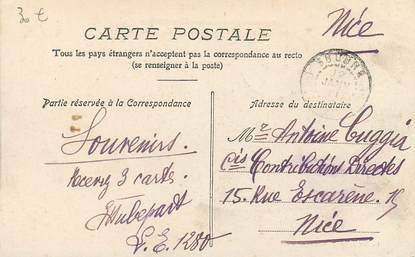 30 €
Nice
CARTE POSTALE
Tous les pays étrangers n'acceptent pas la correspondance au recto
(se renseigner à la poste)
Partie réservée à la Correspondance
Adresse du destinataire
Souvenirs.
Recevez 3 cartes.
L.E. 1280
Mr Antoine Cuggia
Cis Contributions Directes
15. Rue Escarène. 15
Nice